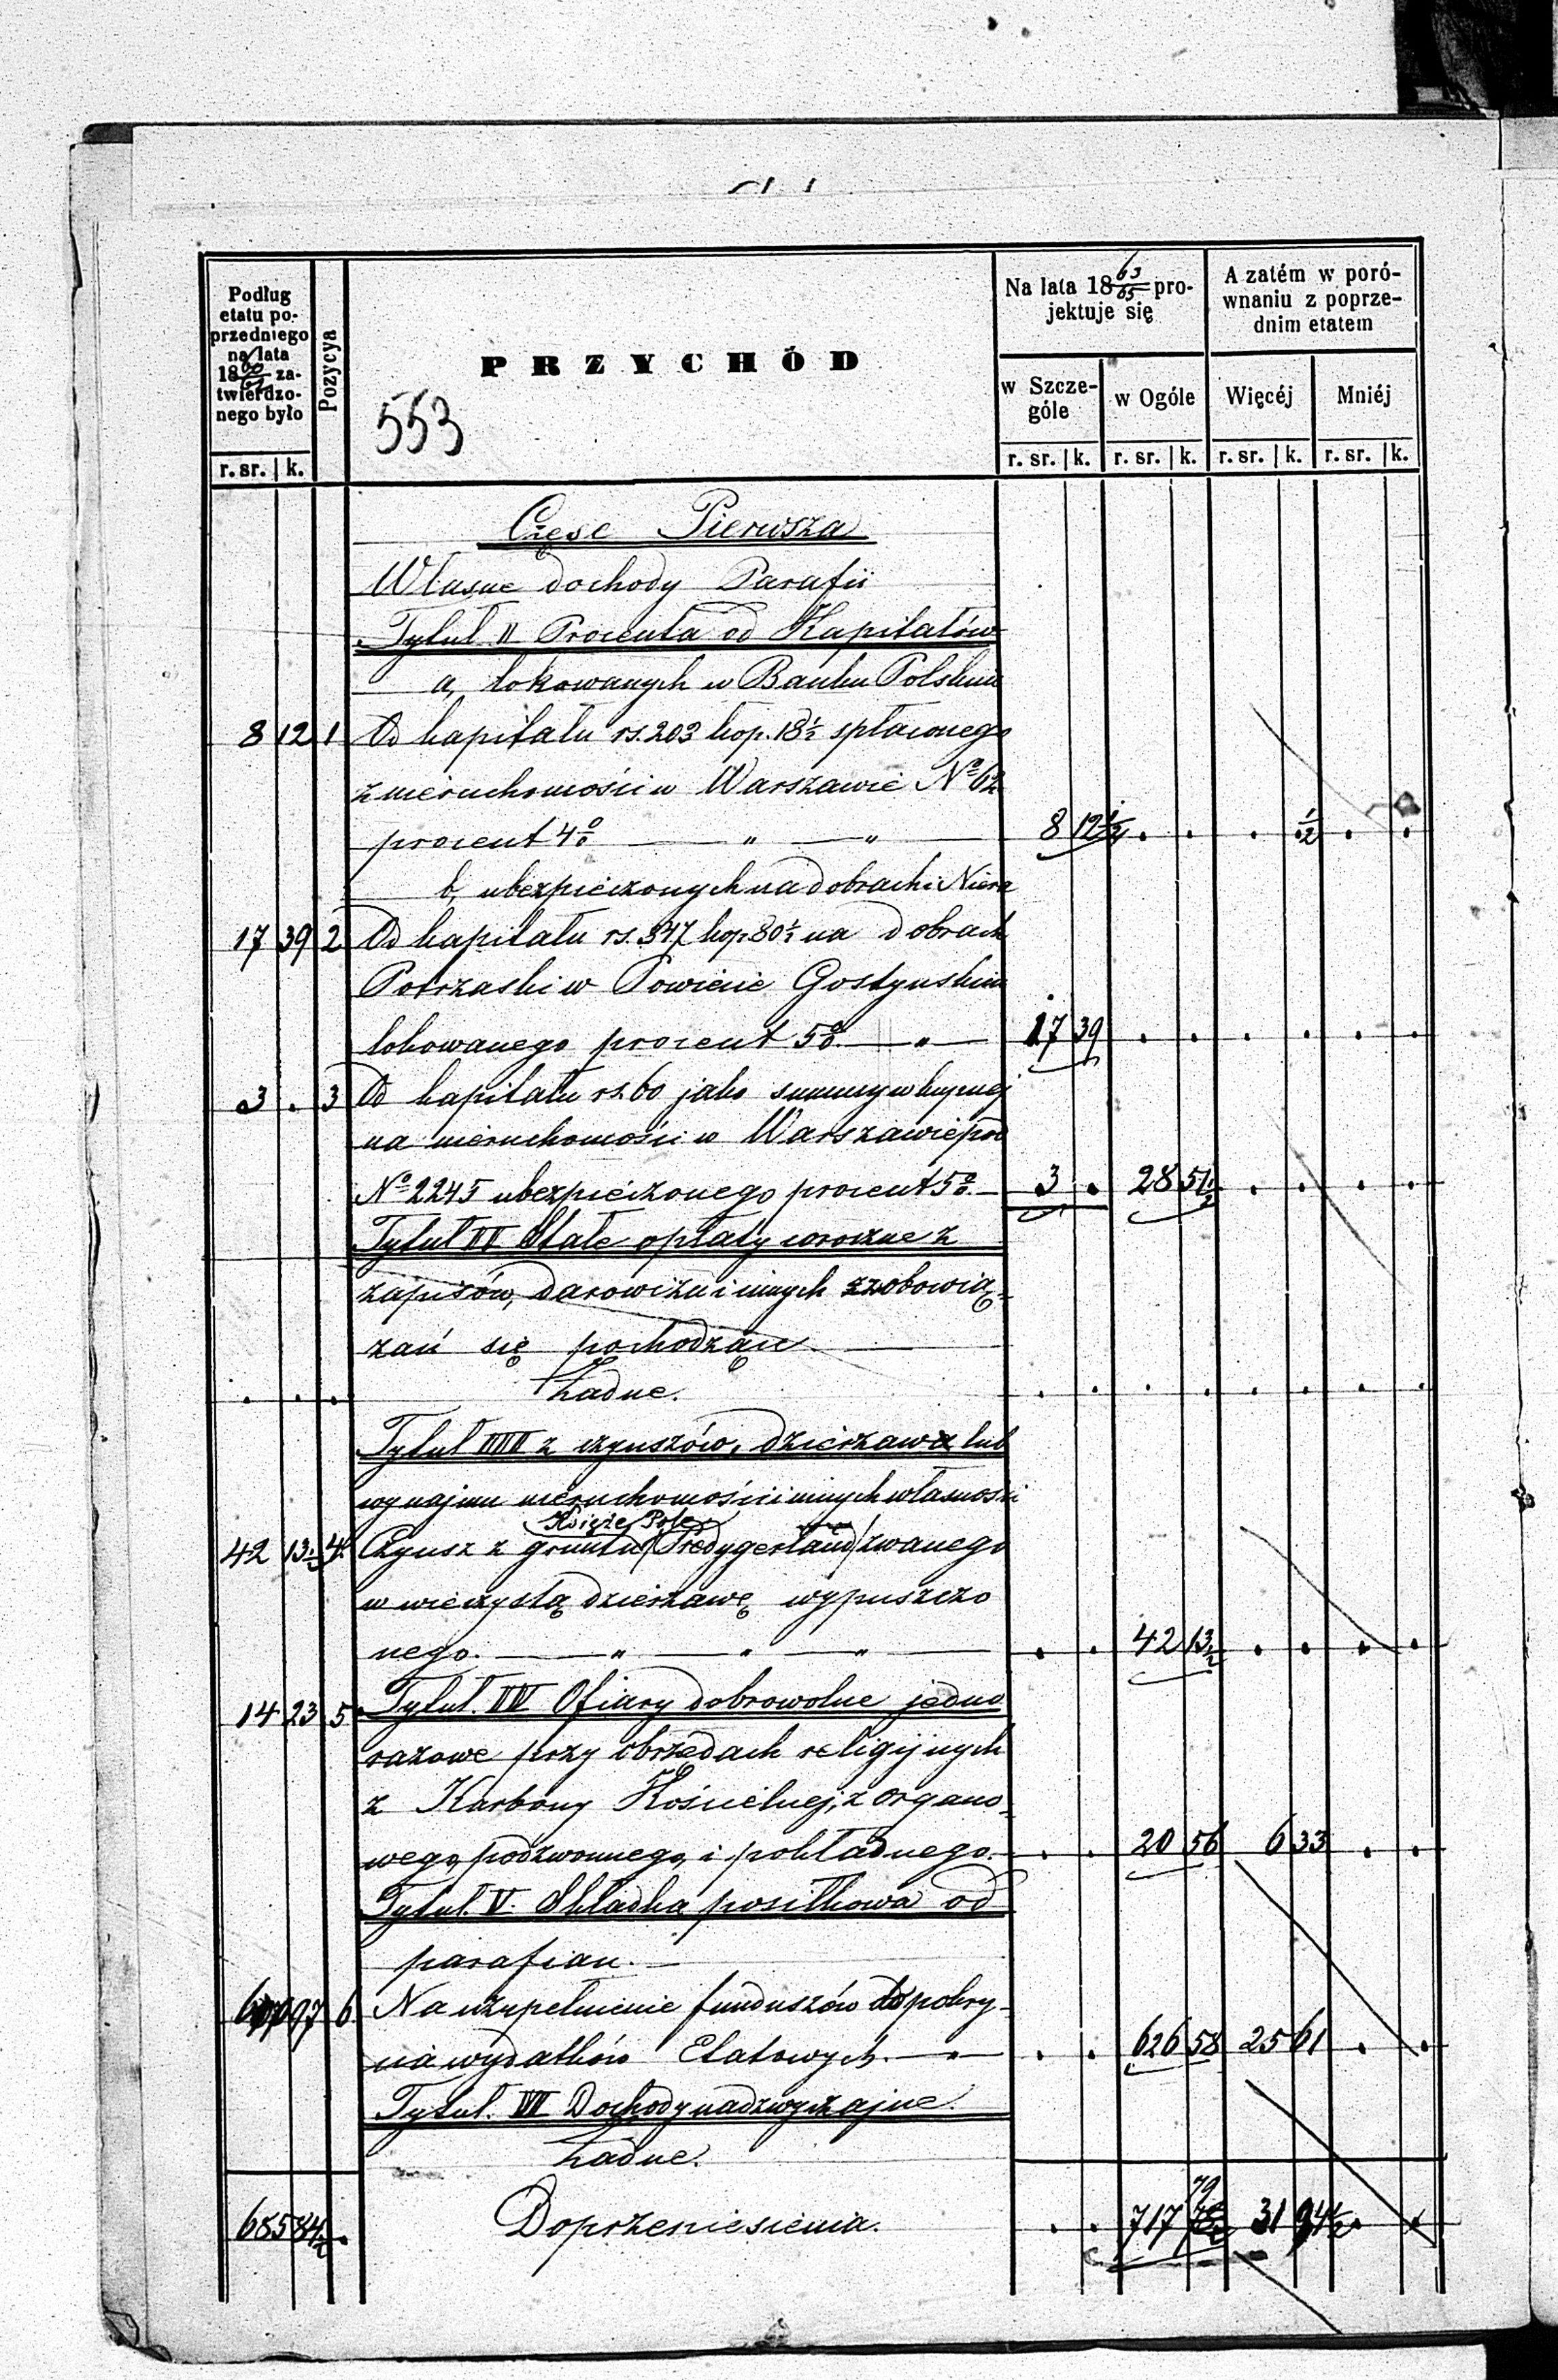 Podług etatu poprzedniego na lata 18 60/62 zatwierdzonego było
Pozycya
PRZYCHÓD
553
Na lata 18 63/65 projektuje się
A zatém w porównaniu z poprzednim etatem
w Szczególe
w Ogóle
Więcéj
Mniéj
r. sr. | k.
r. sr. | k.
r. sr. | k.
r. sr. | k.
r. sr. | k.
Częsc Pierwsza
Własne dochody Parafii
Tytuł II Procenta od Kapitałów
a, lokowanych w Banku Polskim
8 12 1 Od kapitału rs. 203 kop. 18½ spłaconego
z nieruchomości w Warszawie No 62
procent 4% — " — " 8 12½ . . . ½ . .
b, ubezpieczonych na dobrach i Nieru
17 39 2 Od kapitału rs. 347 kop 80½ na dobrach
Potrzaski w Powiecie Gostynskim
lokowanego procent 5% — " — 17 39 . . . . . .
3 . 3 Od kapitału rs. 60 jako summy wkupnej
na nieruchomości w Warszawie pod
No 2245 ubezpieczonego procent 5% — 3 . 28 51½ . . . .
Tytuł III Stałe opłaty coroczne z
zapisów, darowizn i innych zobowią-
zań się pochodzące
. . . Żadne. . . . . . . . .
Tytuł IIII z czynszów, dzierżaw lub
wynajmu nieruchomości i innych własnosci
Księże Pole
42 13½ 4. Czynsz z gruntu (Predygerland) zwanego
w wieczystą dzierżawę wypuszczo
nego. — " — " — " — . . 42 13½ . . . .
14 23 5 Tytuł. IV Ofiary dobrowolne jedno
razowe przy obrzędach religijnych
z Karbony Kościelnej, z organo-
wego, podzwonnego, i pokładnego. . . 20 56 6 33 . .
Tytuł. V. Składka posiłkowa od
parafian. —
97 6 Na uzupełnienie funduszów do pokry-
cia wydatków Etatowych. — " — . . 626 58 25 61 . .
Tytuł. VI Dochody nadzwyczajne.
Żadne.
685 84½ . Do przeniesienia. . . 717 79 31 94½ . .